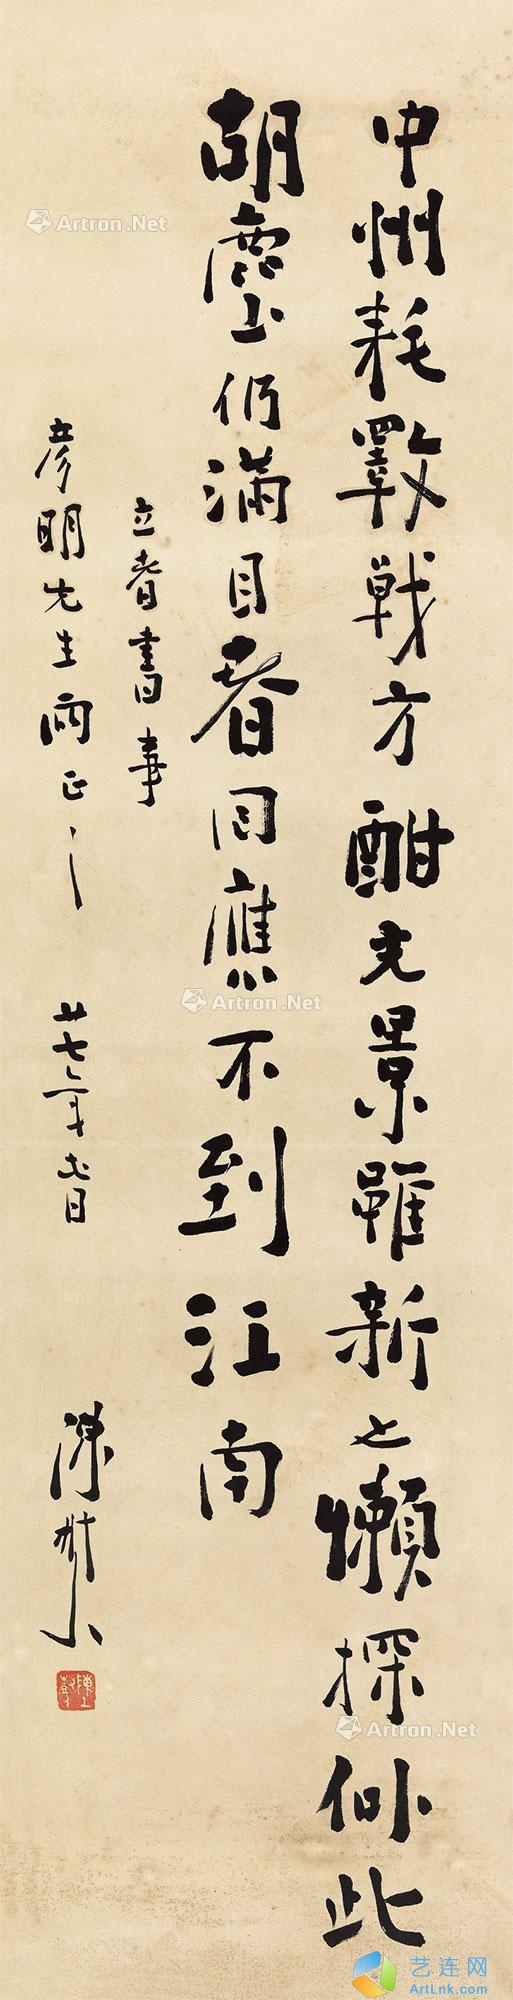 中州耗斁战方酣光景雖新也懶探似此
胡塵仍滿目春回應不到江南
立春書事
彦明先生兩正之
廿七年春日
陳樹人
Artron.Net
Artron.Net
Artron.Net
Artron.Net
艺连网
ArtLnk.com